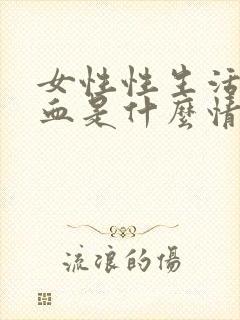 女性性生活
血是什麼情
流浪的傷